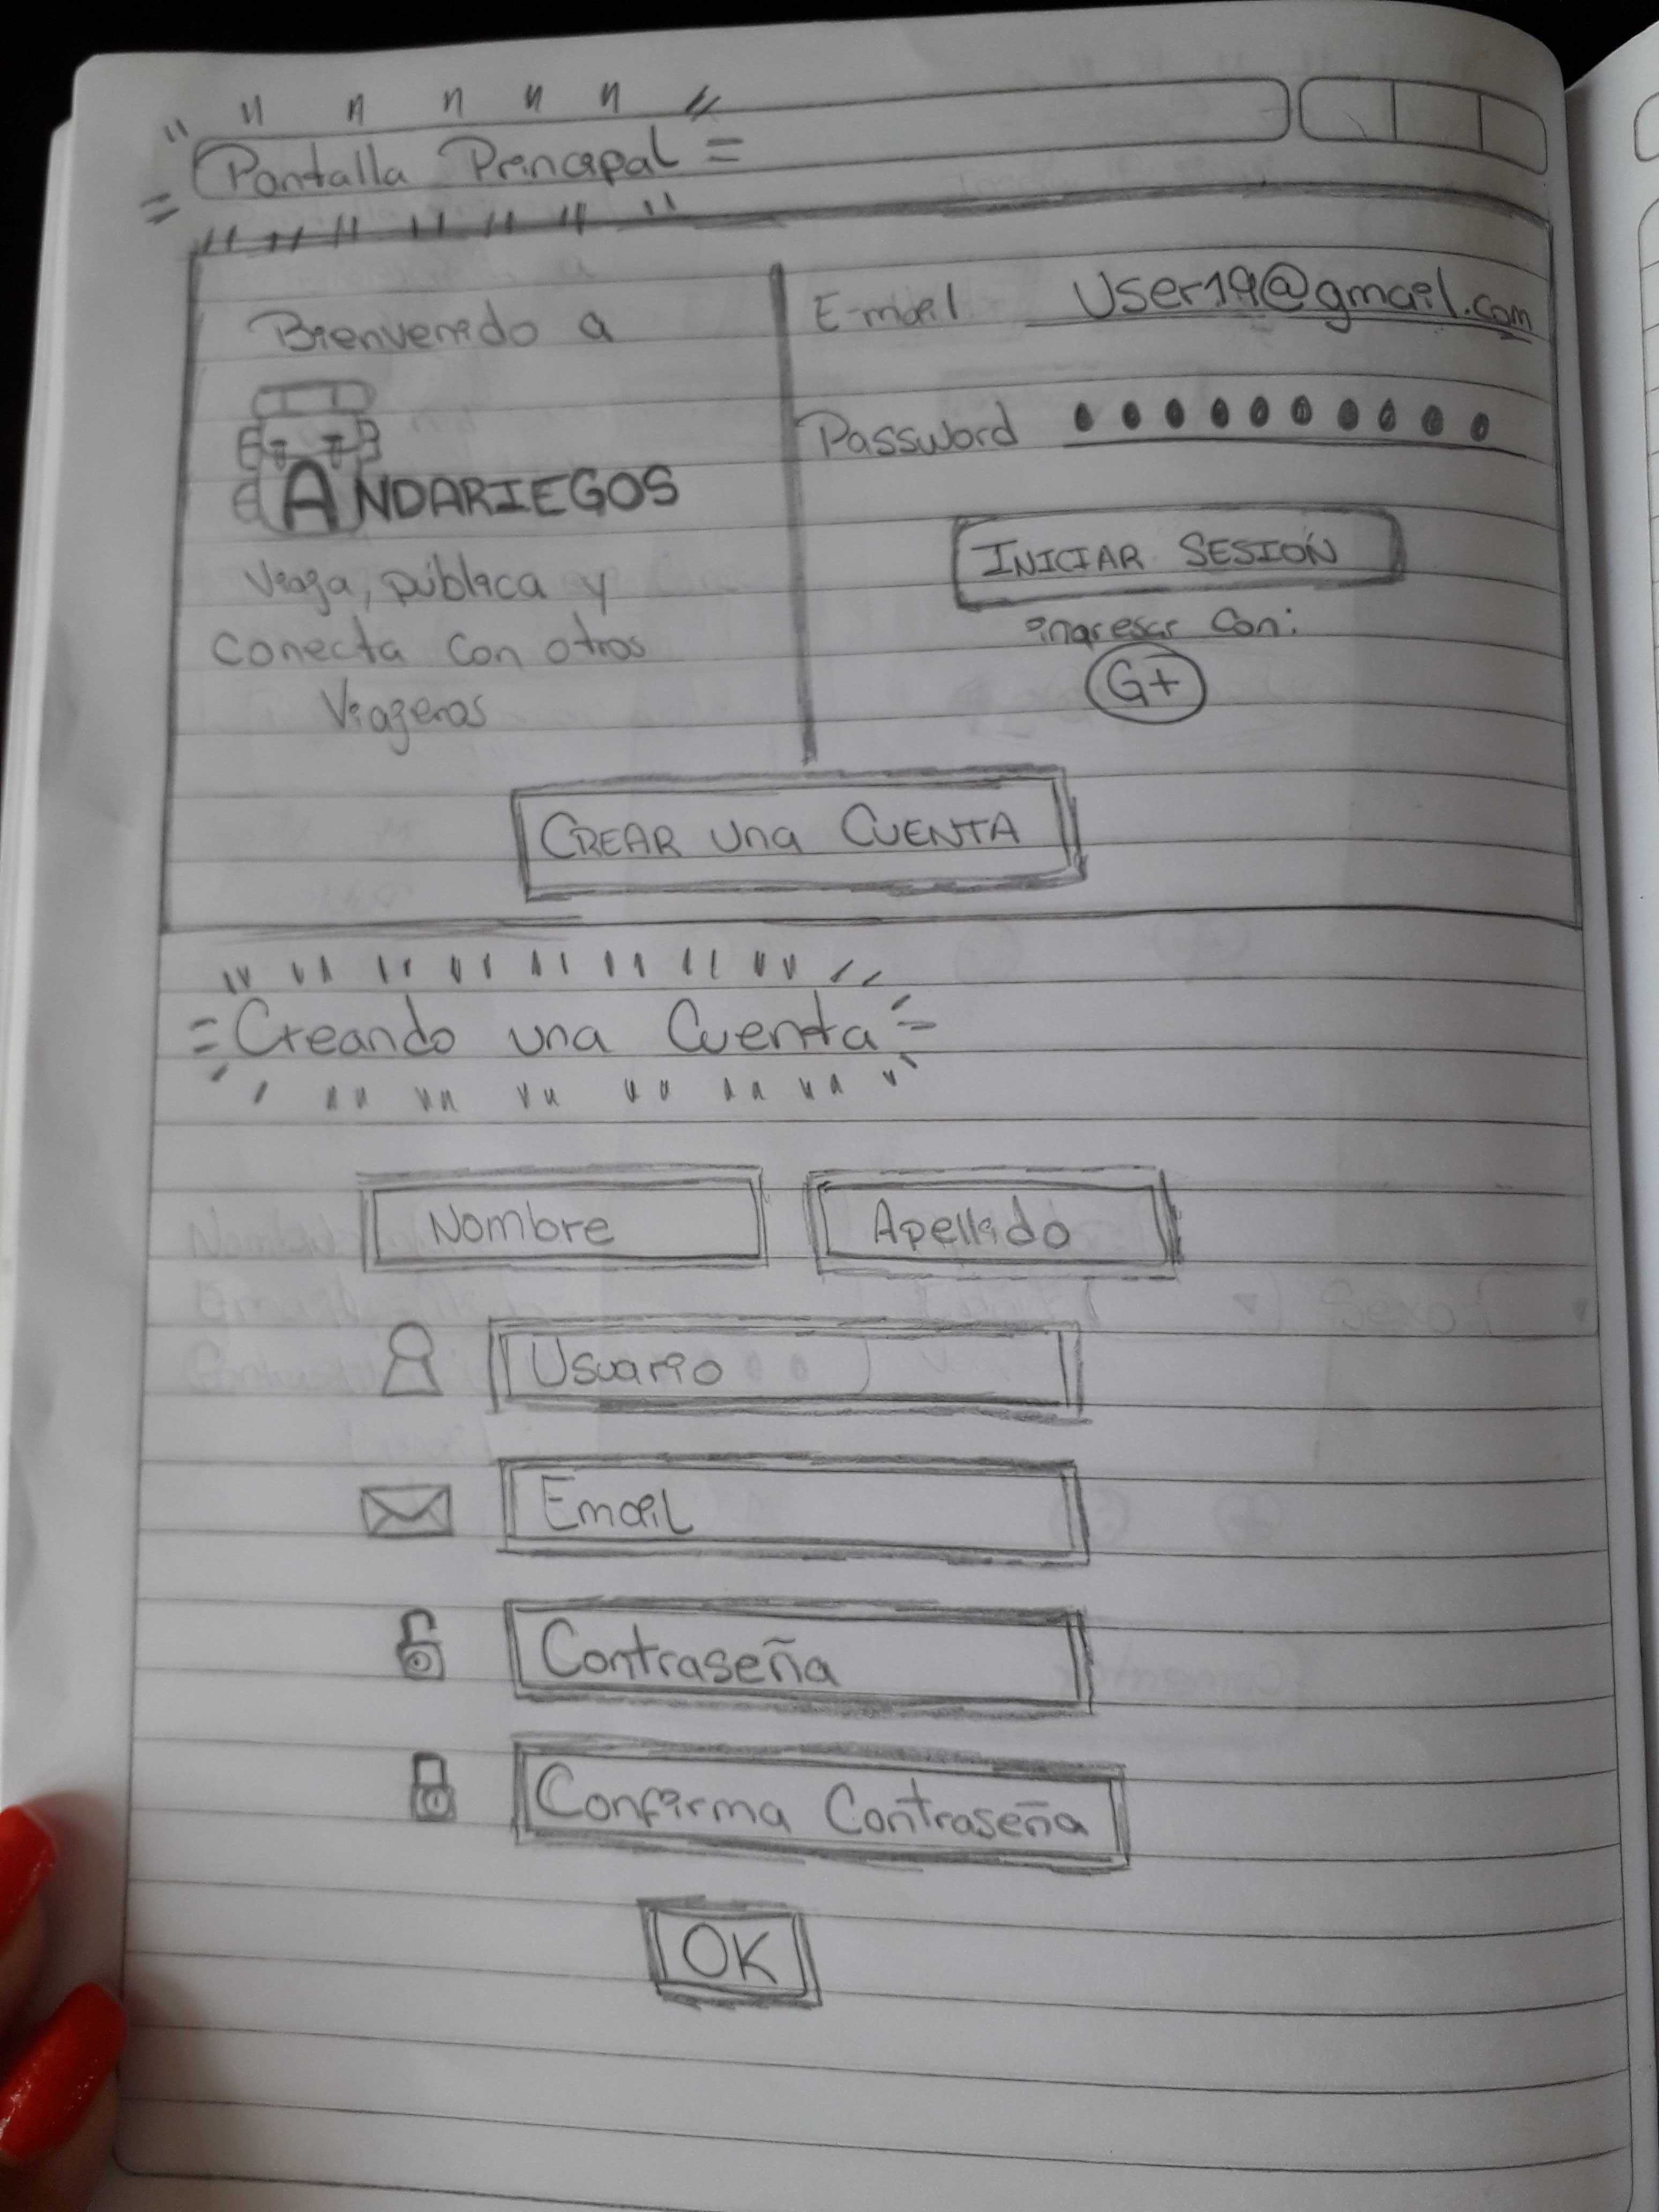 Pantalla Principal
Bienvenido a
ANDARIEGOS
Viaja, pública y
conecta con otros
Viajeros
E-mail User19@gmail.com
Password
INICIAR SESIÓN
ingresar con:
G+
CREAR una CUENTA
Creando una Cuenta
Nombre Apellido
Usuario
Email
Contraseña
Confirma Contraseña
OK